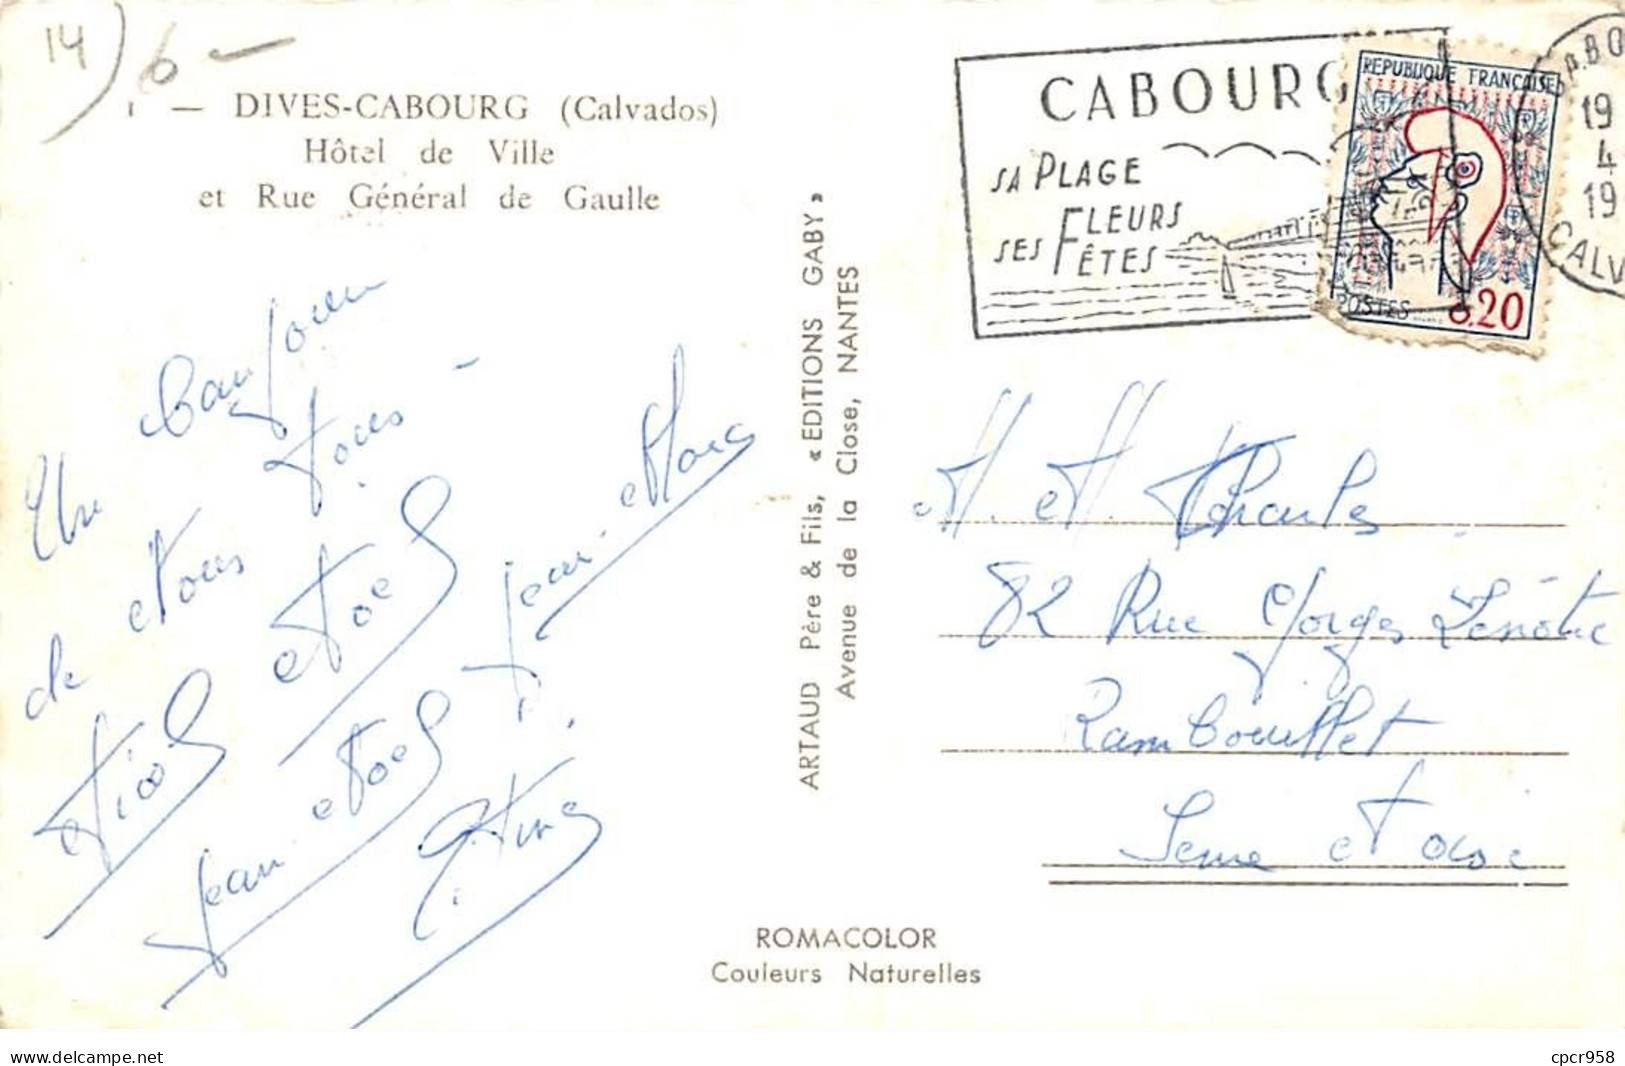 14) 6 —
1 — DIVES-CABOURG (Calvados)
Hôtel de Ville
et Rue Général de Gaulle
Un Bonjour
de Nous tous
Nicol Noel Jean-Marc
Jean-Noel
ARTAUD Père & Fils, « EDITIONS GABY »
Avenue de la Close, NANTES
ROMACOLOR
Couleurs Naturelles
CABOURG
SA PLAGE
SES FLEURS
FÊTES
REPUBLIQUE FRANÇAISE
POSTES 0.20
19
4
19
CALV
M. et M.
82 Rue Gorges Lenôtre
Rambouillet
Seine et Oise
www.delcampe.net
cpcr958